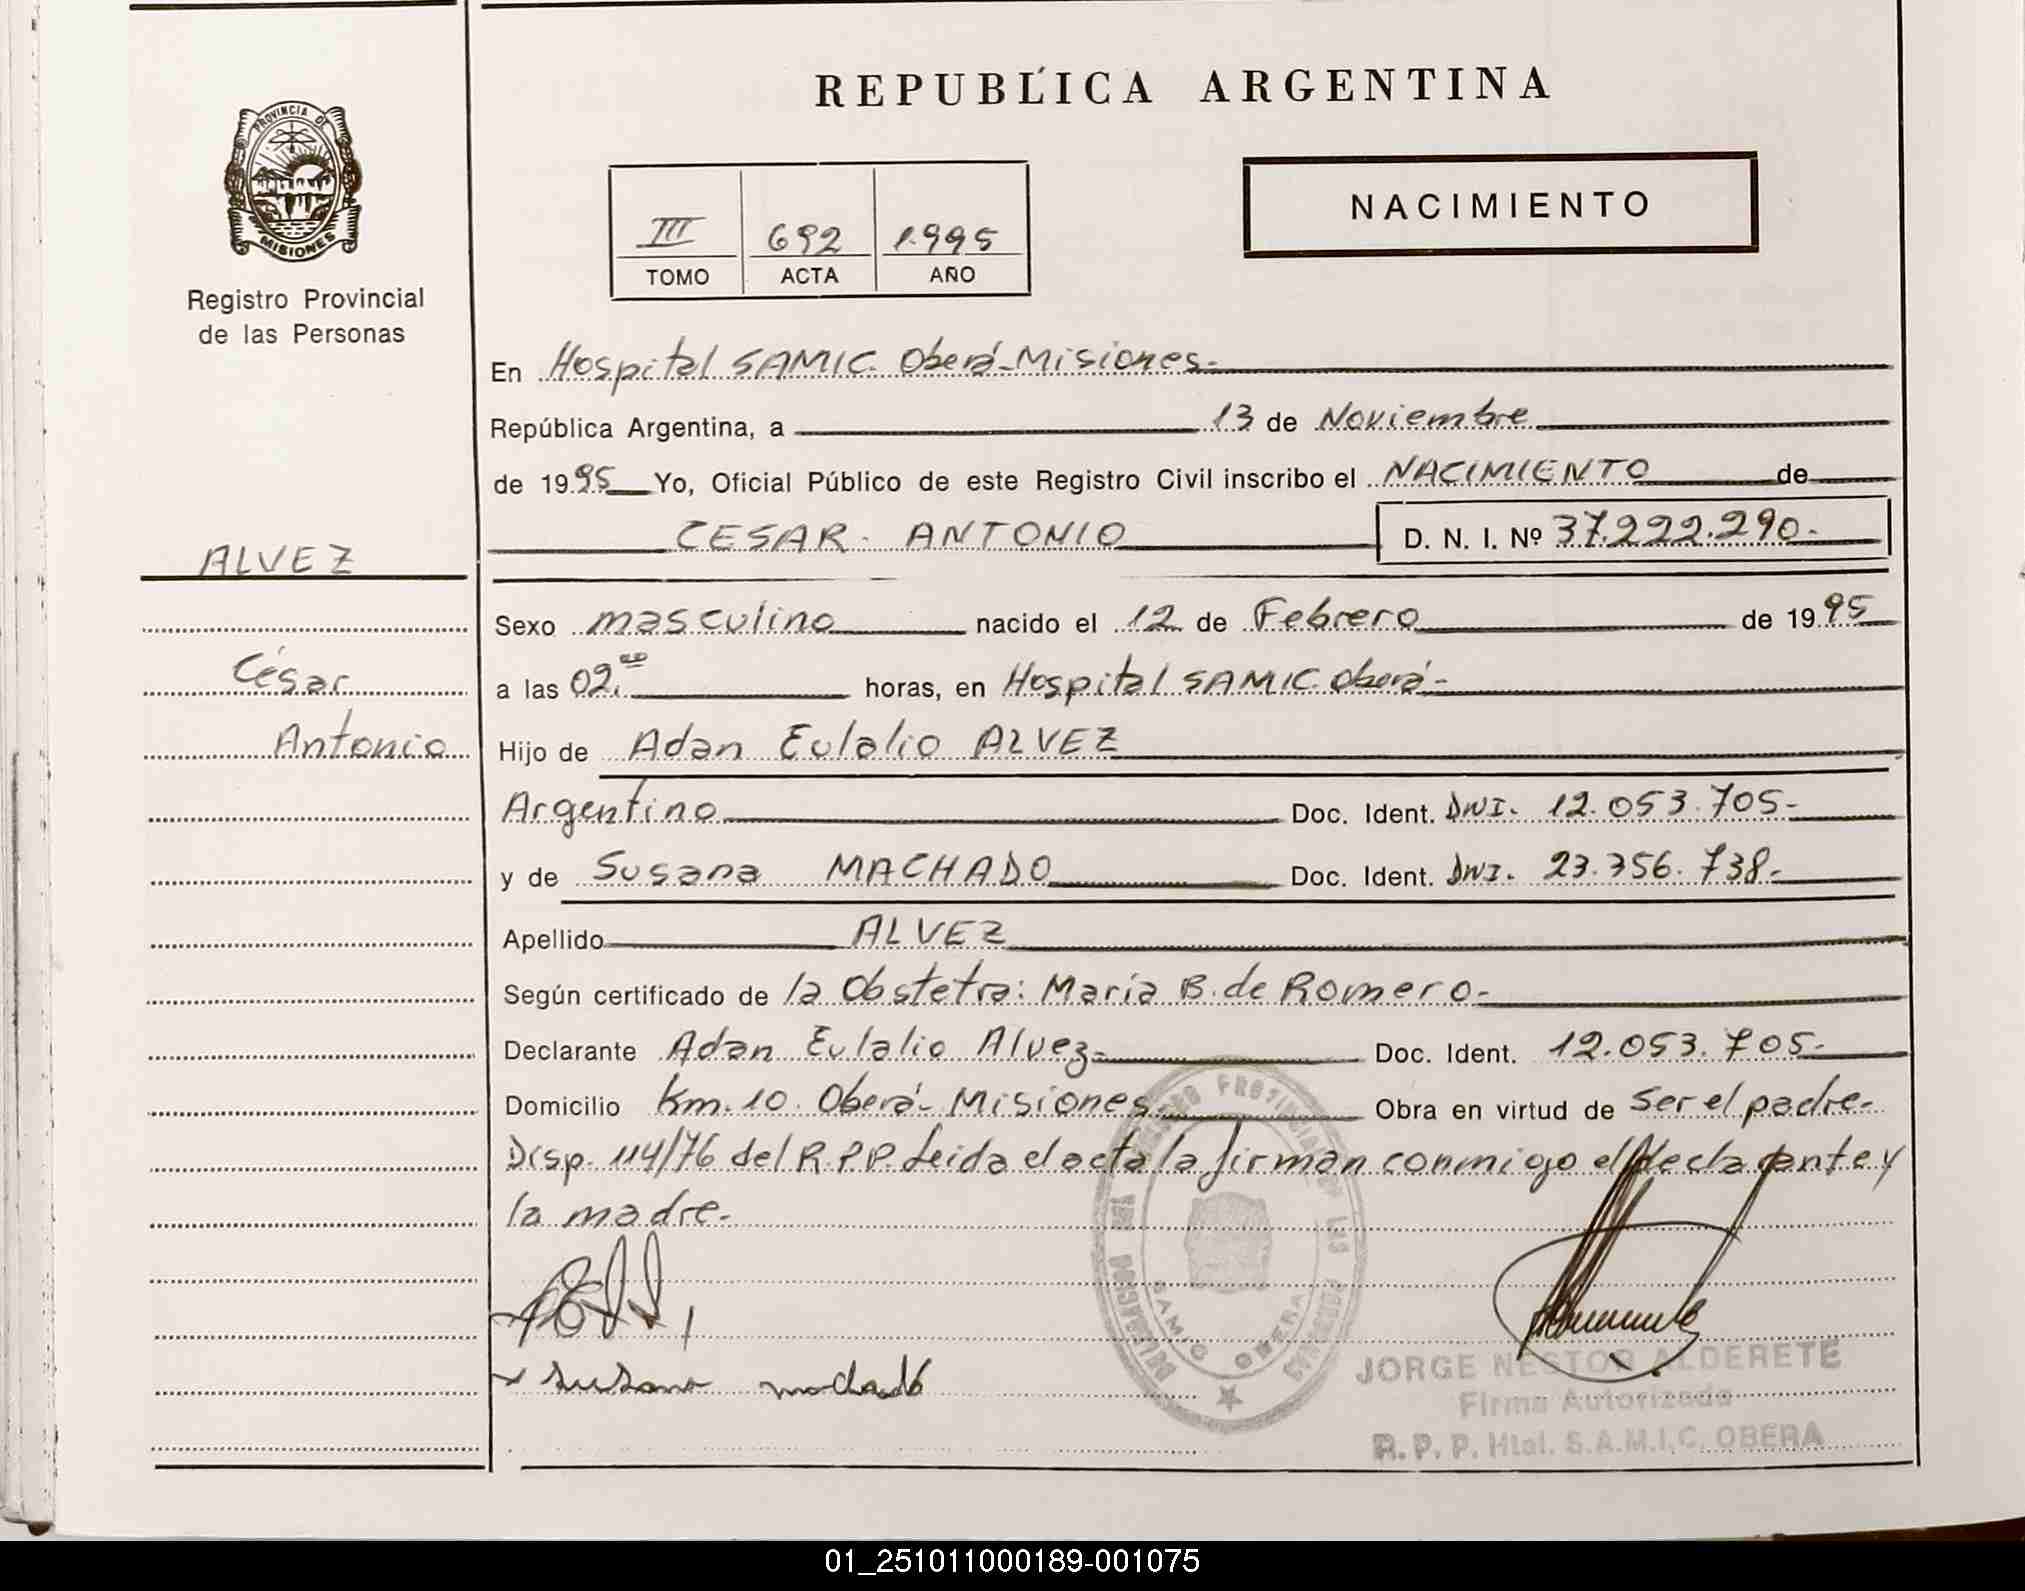 REPUBLICA ARGENTINA
PROVINCIA DE
MISIONES
Registro Provincial
de las Personas
III 692 1.995
TOMO ACTA AÑO
NACIMIENTO
En Hospital SAMIC. Oberá-Misiones-
República Argentina, a 13 de Noviembre
de 1995 Yo, Oficial Público de este Registro Civil inscribo el NACIMIENTO de
CESAR ANTONIO D. N. I. Nº 37.222.290.-
ALVEZ
César
Antonio
Sexo masculino nacido el 12 de Febrero de 1995
a las 02. horas, en Hospital SAMIC. Oberá-
Hijo de Adan Eulalio ALVEZ
Argentino Doc. Ident. DNI. 12.053.705-
y de Susana MACHADO Doc. Ident. DNI. 23.356.738.-
Apellido ALVEZ
Según certificado de la Obstetra: María B. de Romero-
Declarante Adan Eulalio Alvez- Doc. Ident. 12.053.705-
Domicilio Km. 10. Oberá- Misiones- Obra en virtud de Ser el padre-
Disp. 114/76 del R.P.P. Leida el acta la firman conmigo el declarante y
la madre-
Susana machado
SAMIC OBERA
JORGE NESTOR ALDERETE
Firma Autorizada
R. P. P. Htal. S.A.M.I.C. OBERA
01_251011000189-001075